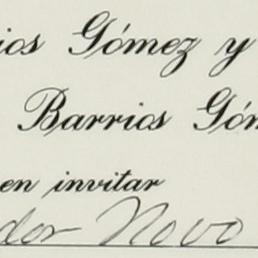 ios Gómez y
Barrios Góm
en invitar
dor Novo